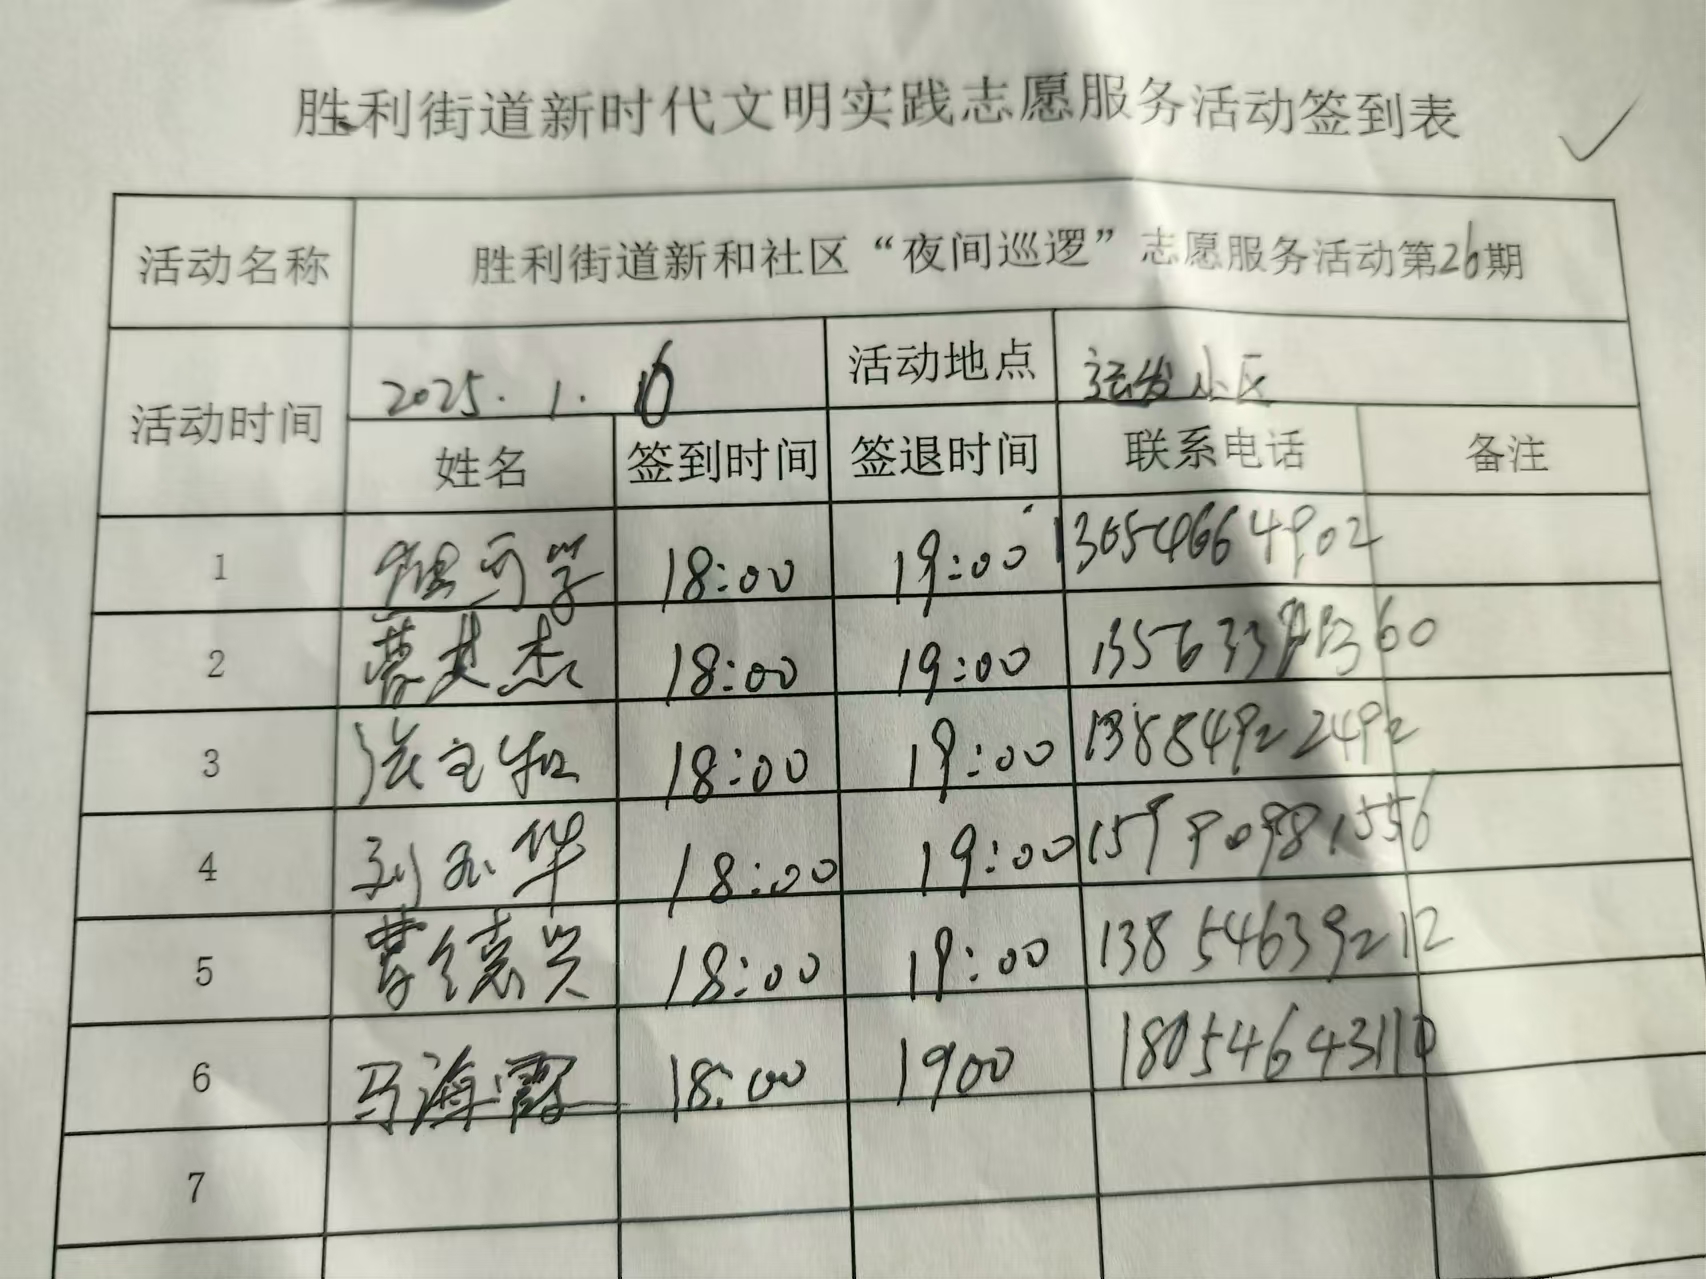 胜利街道新时代文明实践志愿服务活动签到表
活动名称 胜利街道新和社区“夜间巡逻”志愿服务活动第26期
活动时间 2025.1. 活动地点 小区
姓名 签到时间 签退时间 联系电话 备注
1 18:00 19:00 13654664902
2 杰 18:00 19:00
3 张 18:00 19:00 13884922492
4 刘 华 18:00 19:00 15990981556
5 曹德兴 18:00 19:00 13854639212
6 马海霞 18:00 1900 18054643110
7